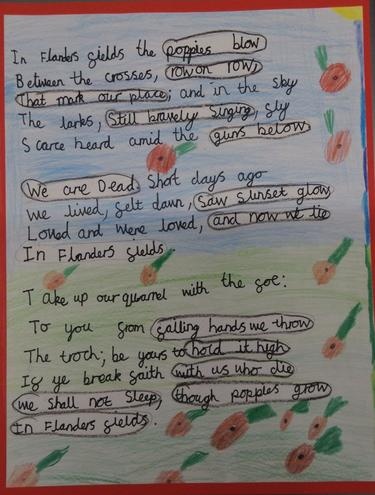 In Flanders fields the poppies blow
Between the crosses, row on row,
That mark our place; and in the sky
The larks, Still bravely Singing, fly
Scarce heard amid the guns below
We are Dead Shot days ago
we lived, felt dawn, saw sunset glow
Loved and were loved, and now we lie
In Flanders fields.
Take up our quarrel with the foe:
To you from falling hands we throw
The troth; be yours to hold it high
If ye break faith with us who die
we shall not Sleep, though poppies grow
In Flanders fields.